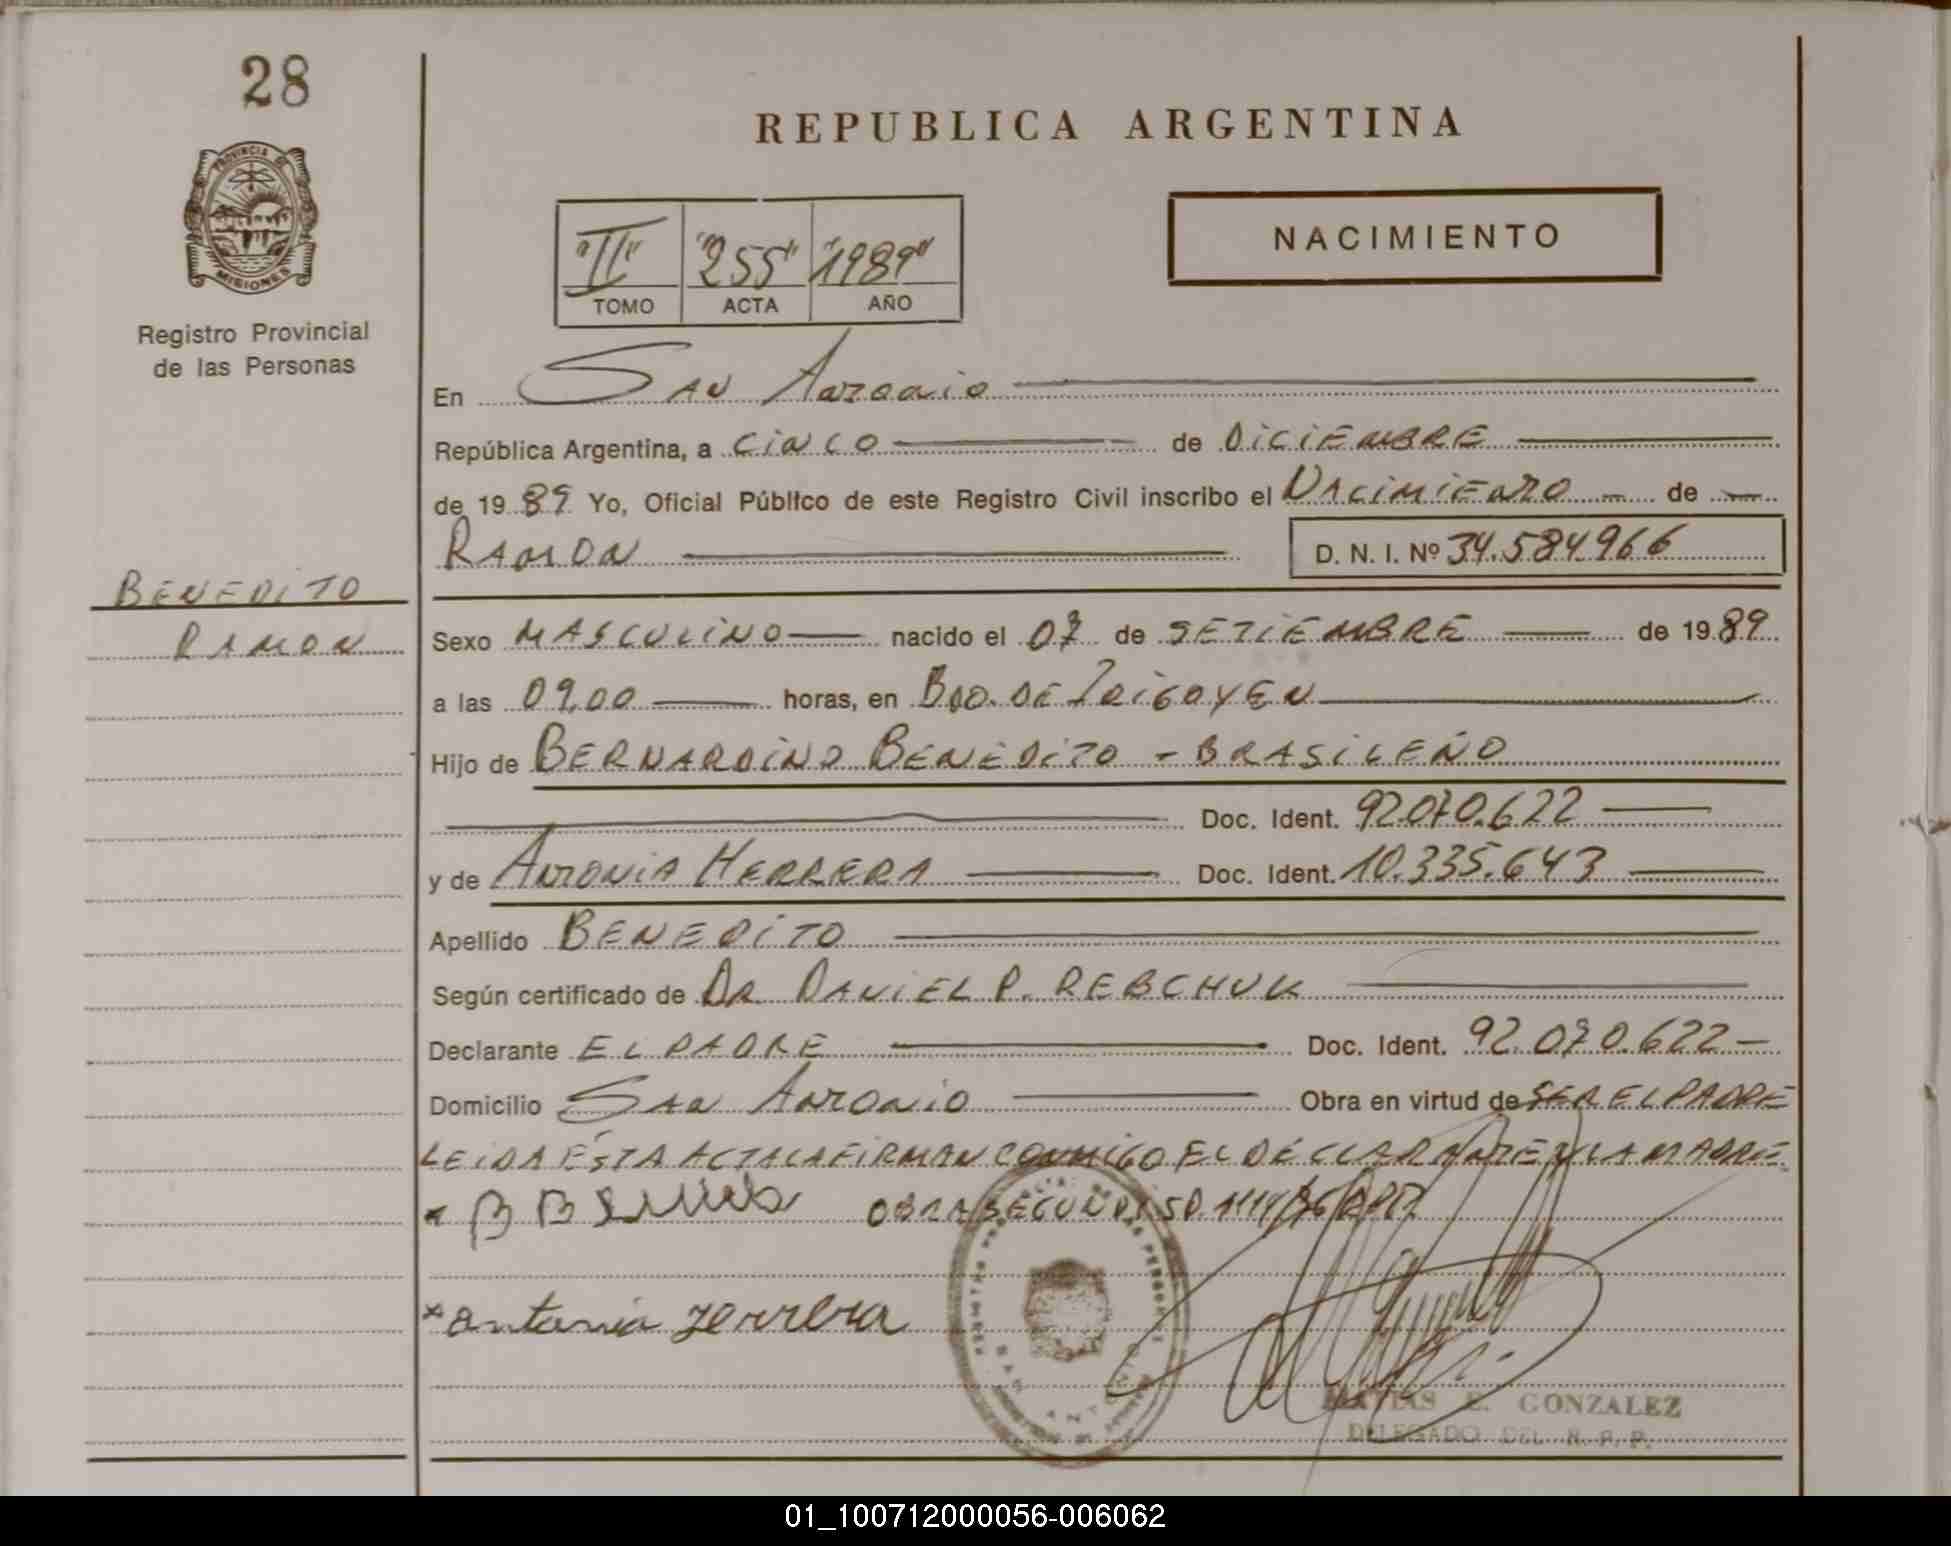 28
REPUBLICA ARGENTINA
PROVINCIA DE
MISIONES
Registro Provincial
de las Personas
NACIMIENTO
"II" "255" "1989"
TOMO ACTA AÑO
En SAN ANTONIO
República Argentina, a CINCO de DICIEMBRE
de 1989 Yo, Oficial Público de este Registro Civil inscribo el NACIMIENTO de
RAMON D. N. I. Nº 34.584966
BENEDITO
RAMON
Sexo MASCULINO nacido el 07 de SETIEMBRE de 1989
a las 09,00 horas, en BDO. DE IRIGOYEN
Hijo de BERNARDINO BENEDITO - BRASILEÑO
Doc. Ident. 92.070.622
y de ANTONIA HERRERA Doc. Ident. 10.335.643
Apellido BENEDITO
Según certificado de DR. DANIEL P. REBCHUK
Declarante EL PADRE Doc. Ident. 92.070.622
Domicilio SAN ANTONIO Obra en virtud de SER EL PADRE
LEIDA ÉSTA ACTA LA FIRMAN CONMIGO EL DECLARANTE Y LA MADRE
OBRA SEGUN
x antania zerrera
SAN ANTONIO
MATIAS E. GONZALEZ
DELEGADO DEL R. P. P.
01_100712000056-006062